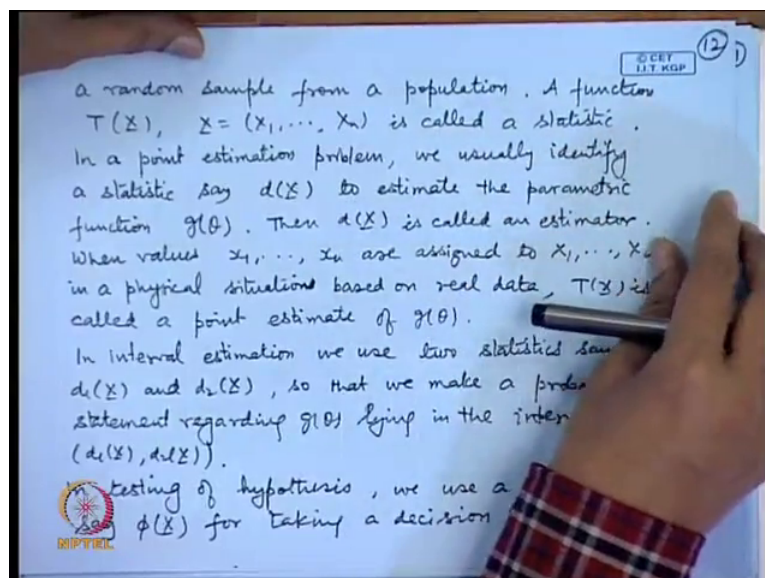 © CET
I.I.T. KGP
12
a random sample from a population. A function
T(X), X = (X1, ..., Xn) is called a statistic.
In a point estimation problem, we usually identify
a statistic say d(X) to estimate the parametric
function g(θ). Then d(X) is called an estimator.
When values x1, ..., xn are assigned to X1, ..., Xn
in a physical situation based on real data, T(X) is
called a point estimate of g(θ).
In interval estimation we use two statistics say
d1(X) and d2(X), so that we make a
statement regarding g(θ) lying in the
(d1(X), d2(X)).
In testing of hypothesis, we use a
say φ(X) for taking a decision
NPTEL